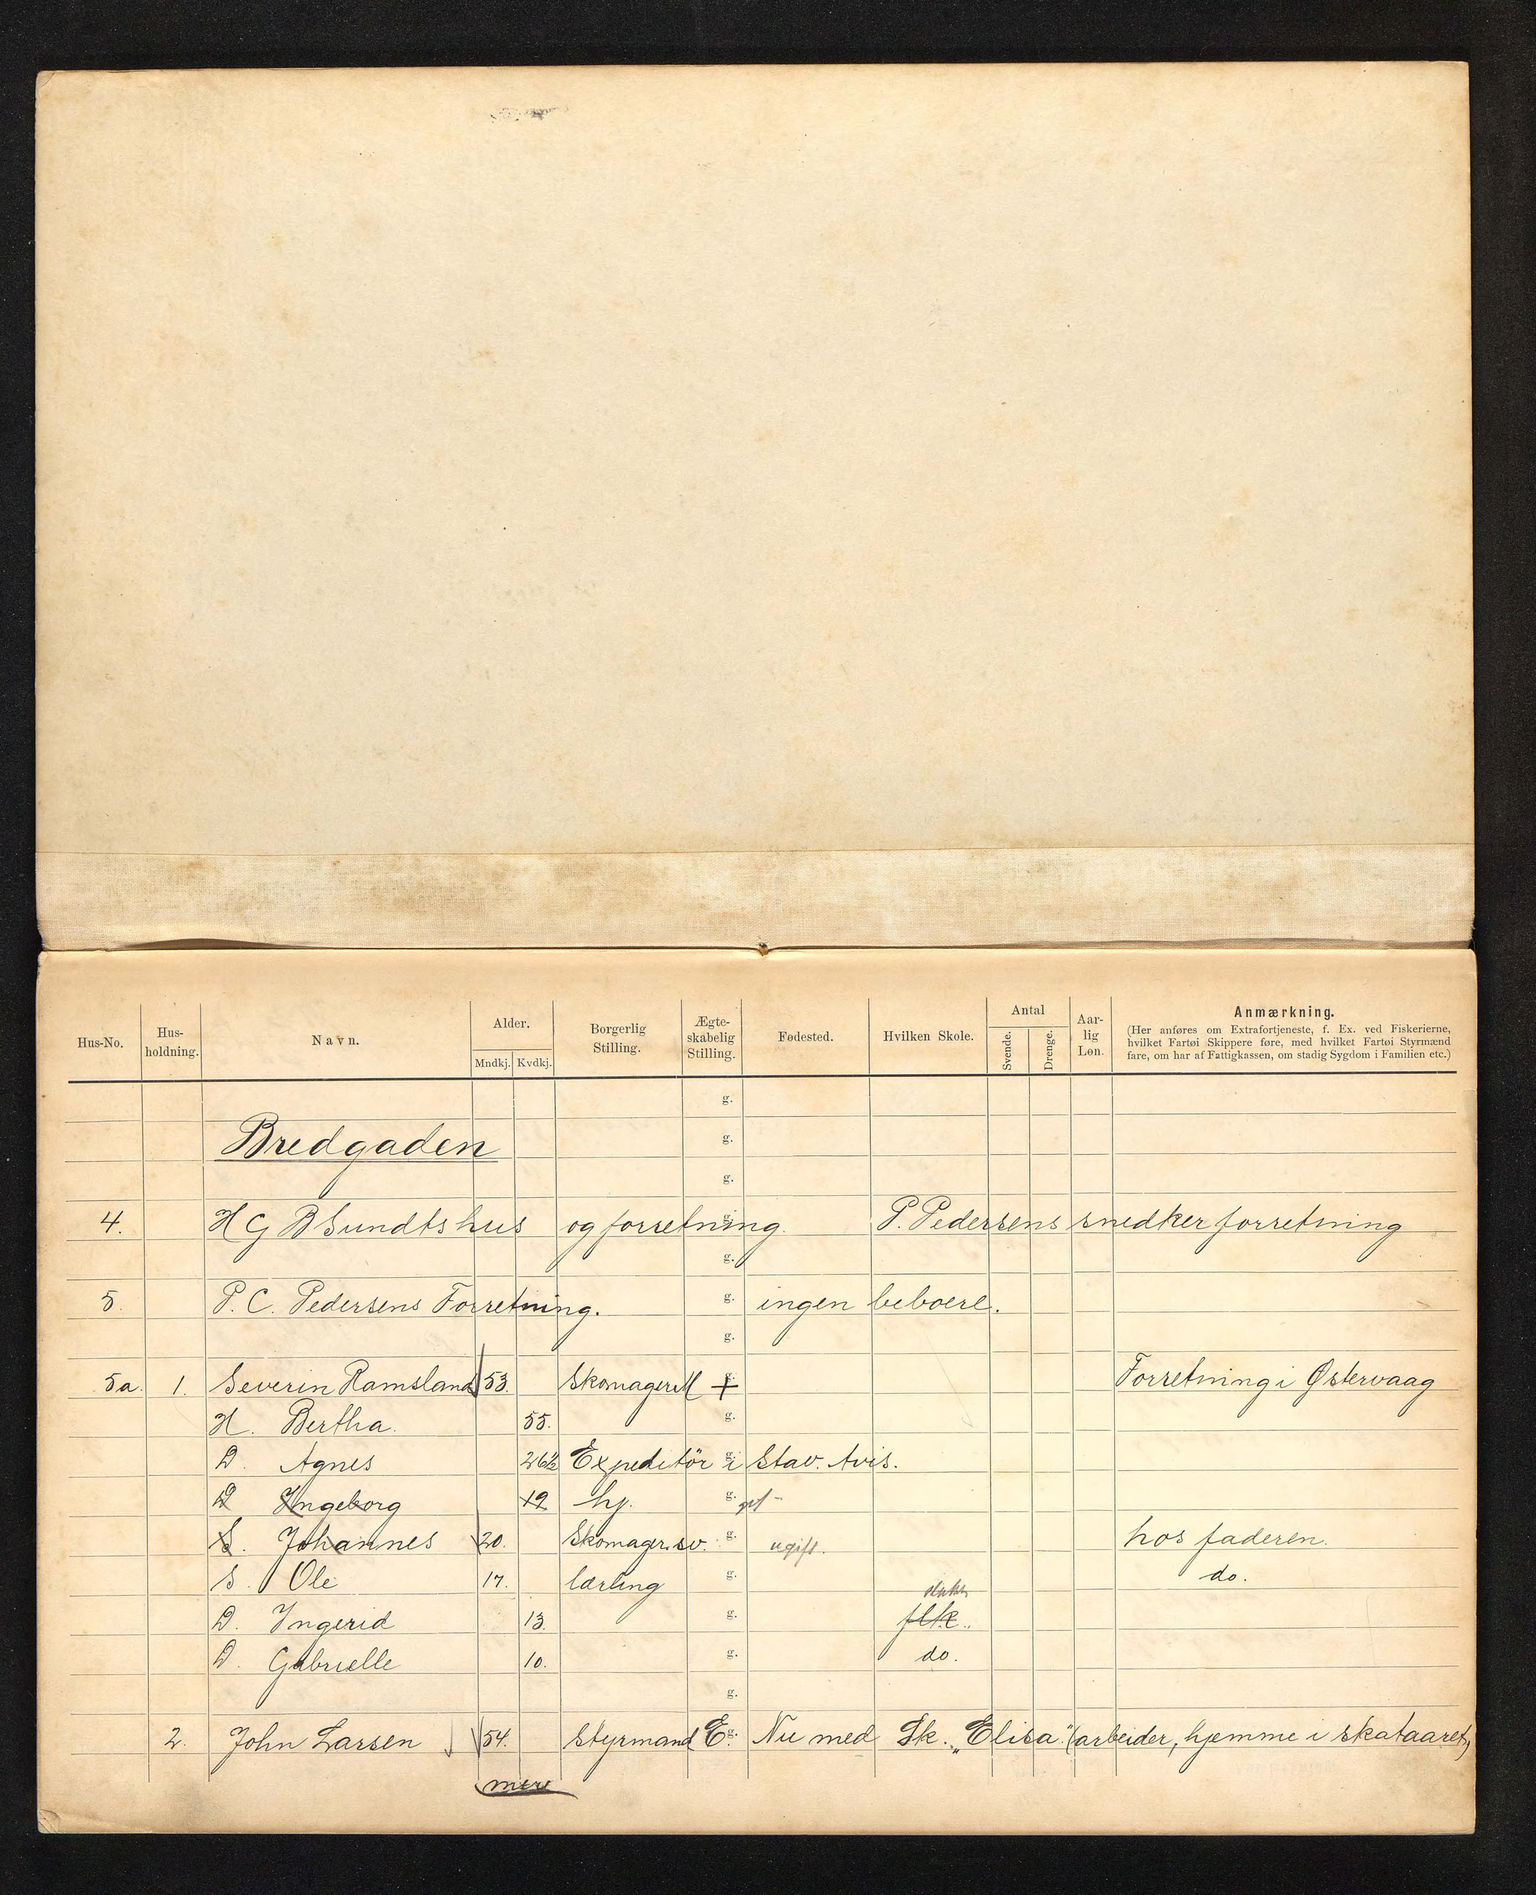 Hus-No. Hus-holdning. Navn. Alder. Mndkj. Kvdkj. Borgerlig Stilling. Ægte-skabelig Stilling. Fødested. Hvilken Skole. Antal Svende. Drenge. Aar-lig Løn. Anmærkning.
(Her anføres om Extrafortjeneste, f. Ex. ved Fiskerierne,
hvilket Fartøi Skippere føre, med hvilket Fartøi Styrmænd
fare, om har af Fattigkassen, om stadig Sygdom i Familien etc.)
g.
Bredgaden g.
g.
4. H G B Sundts hus og forretning. g. P. Pedersens snedkerforretning
g.
5. P. C. Pedersens Forretning. g. ingen beboere.
g.
5a. 1. Severin Ramsland 53. SkomagerM + g. Forretning i Østervaag
H. Bertha. 55. g.
D. Agnes 26½ Expeditör i g. Stav. Avis.
D Ingeborg 19 hj. g.
S. Johannes 20. Skomager.sv. g. ugift. hos faderen.
S. Ole 17. lærling g. do.
D. Ingerid 13. g. flk.
D. Gabrielle 10. g. do.
g.
2. John Larsen 54. Styrmand E. g. Nu med Sk. „Elisa" (arbeider, hjemme i skataaret)
mere